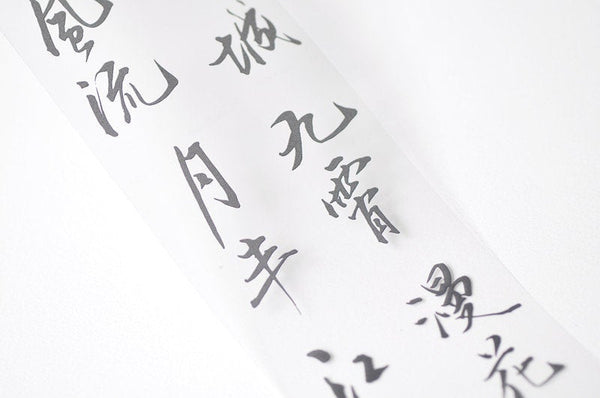 風流
城
九霄
月半
漫花
江